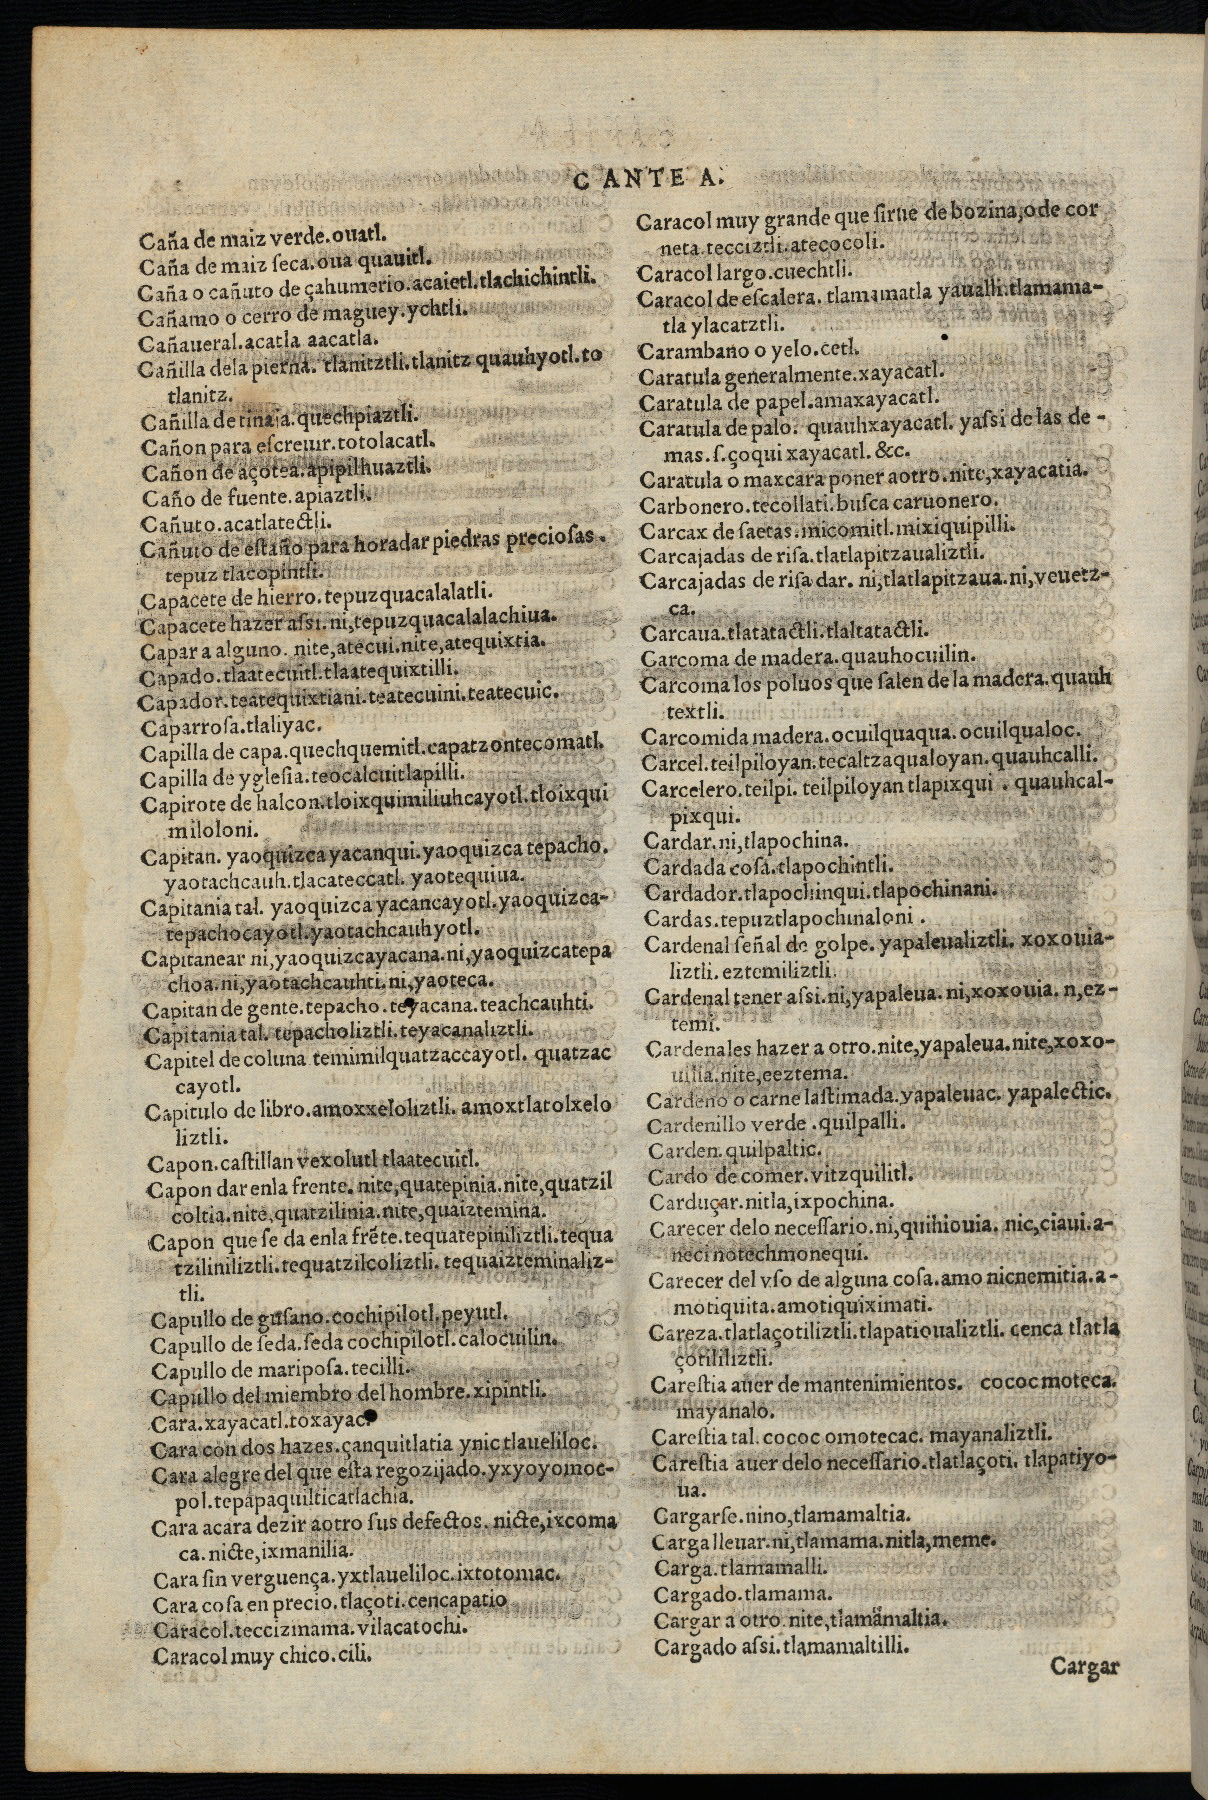 C ANTE A.
Caña de maiz verde.ouatl.
Caña de maiz ſeca.oua quauitl.
Caña o cañuto de çahumerio.acaietl.tlachichintli.
Cañamo o cerro de maguey.ychtli.
Cañaueral.acatla aacatla.
Cañilla dela pierna. tlanitztli.tlanitz quauhyotl.to
tlanitz.
Cañilla de tinaja.quechpiaztli.
Cañon para eſcreuir.totolacatl.
Cañon de açotea.apipilhuaztli.
Caño de fuente.apiaztli.
Cañuto.acatlatectli.
Cañuto de eſtaño para horadar piedras precioſas.
tepuz tlacopintli.
Capacete de hierro.tepuzquacalalatli.
Capacete hazer aſsi.ni,tepuzquacalalachiua.
Capar a alguno. nite,atecui.nite,atequixtia.
Capado.tlaatecuitl.tlaatequixtilli.
Capador.teatequixtiani.teatecuini.teatecuic.
Caparroſa.tlaliyac.
Capilla de capa.quechquemitl.capatzontecomatl.
Capilla de ygleſia.teocalcuitlapilli.
Capirote de halcon.tloixquimiliuhcayotl.tloixqui
miloloni.
Capitan. yaoquizca yacanqui.yaoquizca tepacho.
yaotachcauh.tlacateccatl. yaotequiua.
Capitania tal. yaoquizca yacancayotl.yaoquizca-
tepachocayotl.yaotachcauhyotl.
Capitanear ni,yaoquizcayacana.ni,yaoquizcatepa
choa.ni,yaotachcauhti.ni,yaoteca.
Capitan de gente.tepacho.teyacana.teachcauhti.
Capitania tal. tepacholiztli.teyacanaliztli.
Capitel de coluna temimilquatzaccayotl. quatzac
cayotl.
Capitulo de libro.amoxxeloliztli. amoxtlatolxelo
liztli.
Capon.caſtillan vexolutl tlaatecuitl.
Capon dar enla frente. nite,quatepinia.nite,quatzil
coltia.nite,quatzilinia.nite,quaiztemina.
Capon que ſe da enla frẽte.tequatepiniliztli.tequa
tziliniliztli.tequatzilcoliztli. tequaizteminaliz-
tli.
Capullo de guſano.cochipilotl.peyutl.
Capullo de ſeda.ſeda cochipilotl.calocuilin.
Capullo de maripoſa.tecilli.
Capullo del miembro del hombre.xipintli.
Cara.xayacatl.toxayac.
Cara con dos hazes.çanquitlatia ynic tlaueliloc.
Cara alegre del que eſta regozijado.yxyoyomoc-
pol.tepapaquilticatlachia.
Cara acara dezir aotro ſus defectos. nicte,ixcoma
ca.nicte,ixmanilia.
Cara ſin verguença.yxtlaueliloc.ixtotomac.
Cara coſa en precio.tlaçoti.cencapatio
Caracol.teccizmama.vilacatochi.
Caracol muy chico.cili.
Caracol muy grande que ſirue de bozina,o de cor
neta.tecciztli.atecocoli.
Caracol largo.cuechtli.
Caracol de eſcalera. tlamamatla yaualli.tlamama-
tla ylacatztli.
Carambano o yelo.cetl.
Caratula generalmente.xayacatl.
Caratula de papel.amaxayacatl.
Caratula de palo. quauhxayacatl. yaſsi de las de-
mas.ſ.çoqui xayacatl.&c.
Caratula o maxcara poner aotro.nite,xayacatia.
Carbonero.tecollati.buſca caruonero.
Carcax de ſaetas.micomitl.mixiquipilli.
Carcajadas de riſa.tlatlapitzaualiztli.
Carcajadas de riſa dar. ni,tlatlapitzaua.ni,veuetz-
ca.
Carcaua.tlatatactli.tlaltatactli.
Carcoma de madera.quauhocuilin.
Carcoma los poluos que ſalen de la madera.quauh
textli.
Carcomida madera.ocuilquaqua.ocuilqualoc.
Carcel.teilpiloyan.tecaltzaqualoyan.quauhcalli.
Carcelero.teilpi. teilpiloyan tlapixqui . quauhcal-
pixqui.
Cardar.ni,tlapochina.
Cardada coſa.tlapochintli.
Cardador.tlapochinqui.tlapochinani.
Cardas.tepuztlapochinaloni .
Cardenal ſeñal de golpe. yapaleualiztli. xoxouia-
liztli.eztemiliztli.
Cardenal tener aſsi.ni,yapaleua.ni,xoxouia. n,ez-
temi.
Cardenales hazer a otro.nite,yapaleua.nite,xoxo-
uilia.nite,eeztema.
Cardeno o carne laſtimada.yapaleuac. yapalectic.
Cardenillo verde .quilpalli.
Carden.quilpaltic.
Cardo de comer.vitzquilitl.
Carduçar.nitla,ixpochina.
Carecer delo neceſſario.ni,quihiouia. nic,ciaui.a-
neci notechmonequi.
Carecer del vſo de alguna coſa.amo nicnemitia.a-
motiquita.amotiquiximati.
Careza.tlatlaçotiliztli.tlapatioualiztli. cenca tlatla
çotililiztli.
Careſtia auer de mantenimientos. cococ moteca.
mayanalo.
Careſtia tal.cococ omotecac. mayanaliztli.
Careſtia auer delo neceſſario.tlatlaçoti. tlapatiyo-
ua.
Cargarſe.nino,tlamamaltia.
Carga lleuar.ni,tlamama.nitla,meme.
Carga.tlamamalli.
Cargado.tlamama.
Cargar a otro.nite,tlamamaltia.
Cargado aſsi.tlamamaltilli.
Cargar